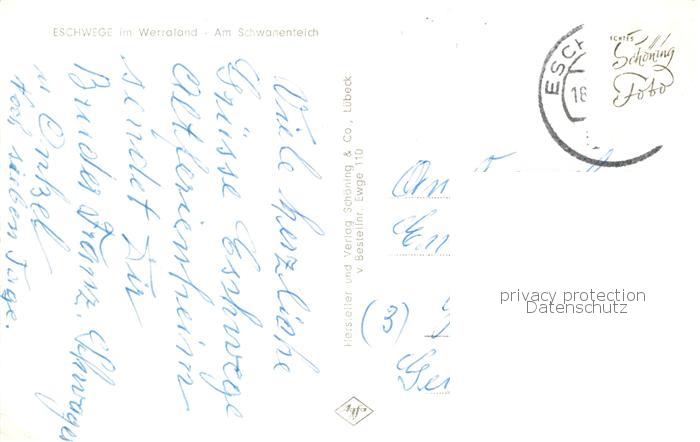 ESCHWEGE im Werraland - Am Schwanenteich
Viele herzliche
Grüsse Eschwege
Altferienheim
sendet Dir
Bruder Franz. Schwager
u Onkel
noch sieben Tage.
Hersteller und Verlag Schöning & Co., Lübeck
v. Bestellnr. Ewge 110
ESCH
18
ECHTES
Schöning
Foto
An
Em
(3)
Ger
privacy protection
Datenschutz